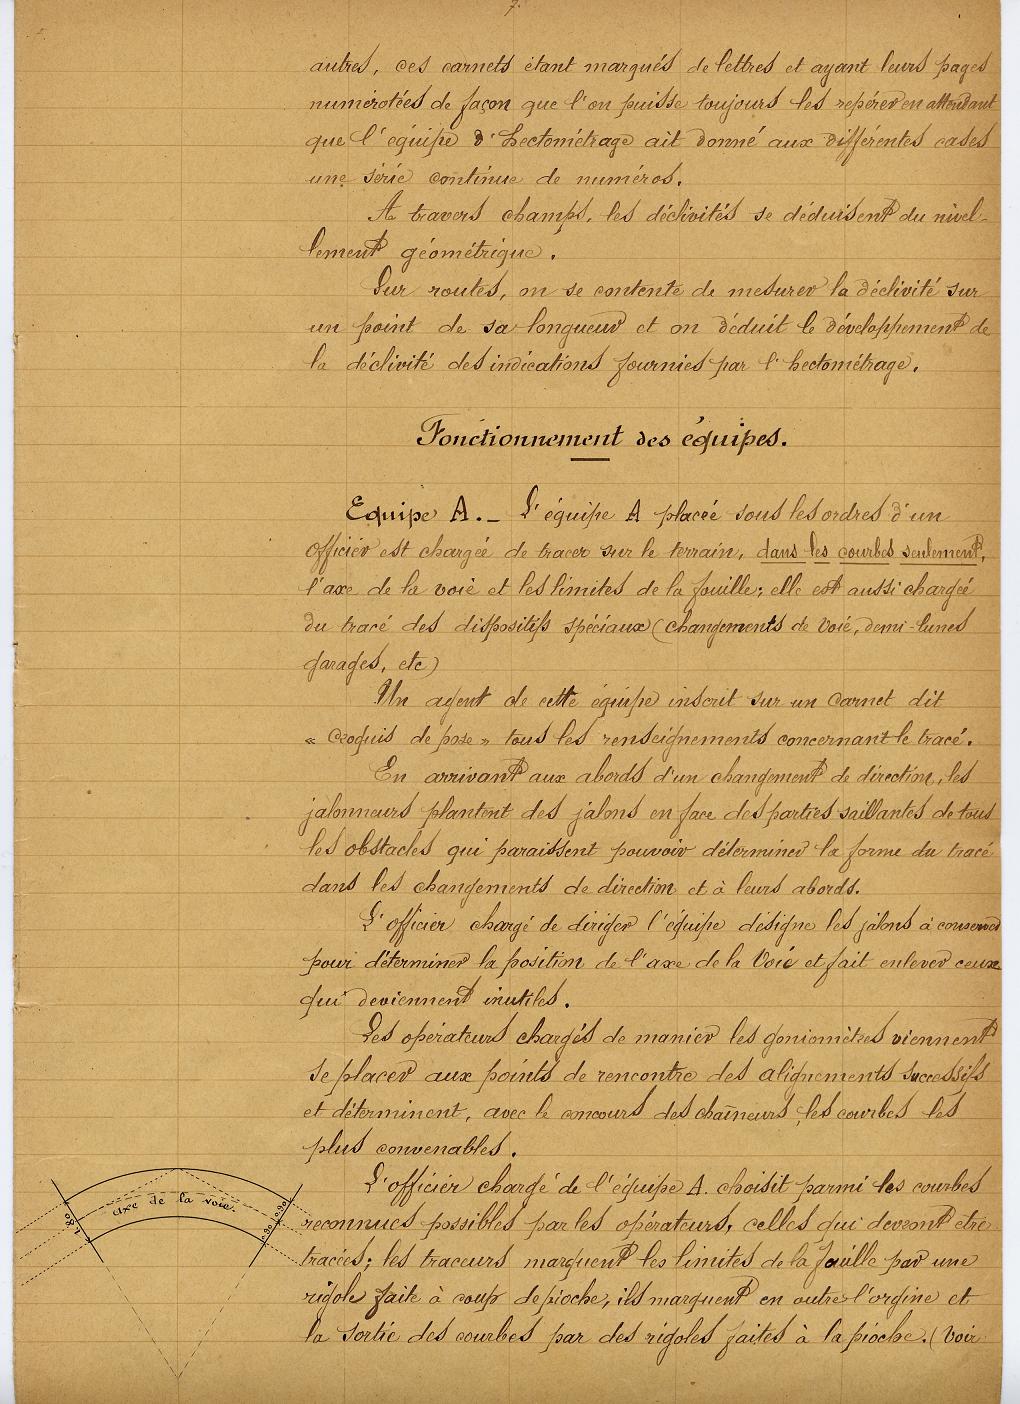 7.
autres, ces carnets étant marqués de lettres et ayant leurs pages
numérotées de façon que l'on puisse toujours les repérer en attendant
que l'équipe d'hectométrage ait donné aux différentes cases
une série continue de numéros.
A travers champs, les déclivités se déduisent du nivel-
lement géométrique.
Sur routes, on se contente de mesurer la déclivité sur
un point de sa longueur et on déduit le développement de
la déclivité des indications fournies par l'hectométrage.
Fonctionnement des équipes.
Equipe A. _ L'équipe A placée sous les ordres d'un
officier est chargée de tracer sur le terrain, dans les courbes seulement,
l'axe de la voie et les limites de la fouille; elle est aussi chargée
du tracé des dispositifs spéciaux (changements de voie, demi-lunes
garages, etc)
Un agent de cette équipe inscrit sur un carnet dit
« croquis de pose » tous les renseignements concernant le tracé.
En arrivant aux abords d'un changement de direction, les
jalonneurs plantent des jalons en face des parties saillantes de tous
les obstacles qui paraissent pouvoir déterminer la forme du tracé
dans les changements de direction et à leurs abords.
L'officier chargé de diriger l'équipe désigne les jalons à conserver
pour déterminer la position de l'axe de la Voie et fait enlever ceux
qui deviennent inutiles.
Les opérateurs chargés de manier les goniomètres viennent
se placer aux points de rencontre des alignements successifs
et déterminent, avec le concours des chaîneurs, les courbes les
plus convenables.
L'officier chargé de l'équipe A. choisit parmi les courbes
reconnues possibles par les opérateurs, celles qui devront être
tracées; les traceurs marquent les limites de la fouille par une
rigole faite à coup de pioche, ils marquent en outre l'origine et
la sortie des courbes par des rigoles faites à la pioche. (Voir
axe de la voie.
1.80
0.90
0.90